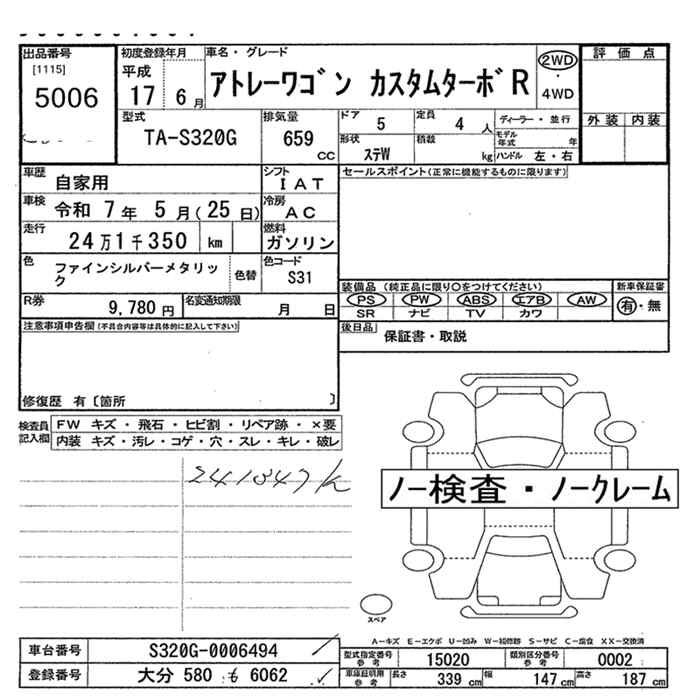 出品番号 初度登録年月 車名・グレード 評価点
[1115] 平成 アトレーワゴン カスタムターボR 2WD
5006 17 6月 4WD
型式 排気量 ドア 5 定員 4人 ディーラー・並行 外装 内装
TA-S320G 659 CC 形状 ステW 積載 kg モデル年式 年
ハンドル 左・右
車歴 自家用 シフト IAT セールスポイント(正常に機能するものに限ります)
車検 令和 7年 5月(25日) 冷房 AC
走行 24万1千350 km 燃料 ガソリン
色 ファインシルバーメタリック 色替 色コード S31
装備品(純正品に限り○をつけてください) 新車保証書
R券 9,780円 名変通知期限 月 日 PS PW ABS エアB AW 有・無
SR ナビ TV カワ
注意事項申告欄(不具合内容等は具体的に記入して下さい) 後日品 保証書・取説
修復歴 有〔箇所 〕
検査員記入欄 FW キズ・飛石・ヒビ割・リペア跡・×要
内装 キズ・汚レ・コゲ・穴・スレ・キレ・破レ
ノー検査・ノークレーム
スペア
A-キズ E-エクボ U-凹み W-補修跡 S-サビ C-腐食 XX-交換済
車台番号 S320G-0006494 型式指定番号参考 15020 類別区分番号参考 0002
登録番号 大分 580 も 6062 車庫証明用参考 長さ 339 cm 幅 147 cm 高さ 187 cm